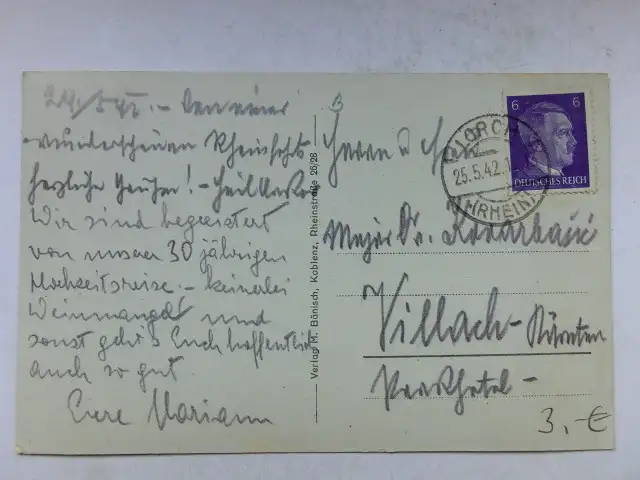 24/5 42. - Von einer
wunderschönen Rheinfahrt
herzliche Grüße! - Heil
Wir sind begeistert
von unserer 30 jährigen
Hochzeitsreise - keinerlei
Weinmangel und
sonst geht's Euch hoffentlich
auch so gut.
Eure Mariann
Verlag M. Bönisch, Koblenz, Rheinstraße 26/28
6 6
DEUTSCHES REICH
LORCH
25.5.42.1
(RHEIN)
Herrn u
Major Dr.
Villach - Kärnten
Parkhotel -
3,-€